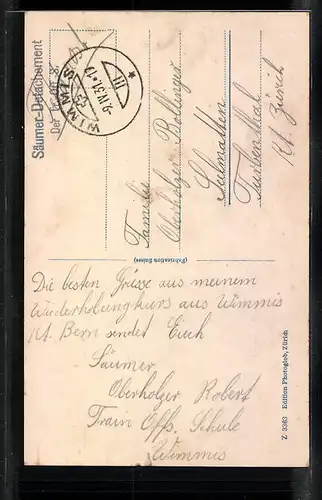 Säumer-Detachement
WIMMIS
9.IV.31.-17
III
Familie
Oberholzer-Bollinger
Seelmatten
Turbenthal
Kt. Zürich
(Fabrication Suisse)
Die besten Grüsse aus meinem
Wiederholungskurs aus Wimmis
Kt. Bern sendet Euch
Säumer
Oberholzer Robert
Train Offs. Schule
Wimmis
Z 3363 Edition Photoglob, Zürich